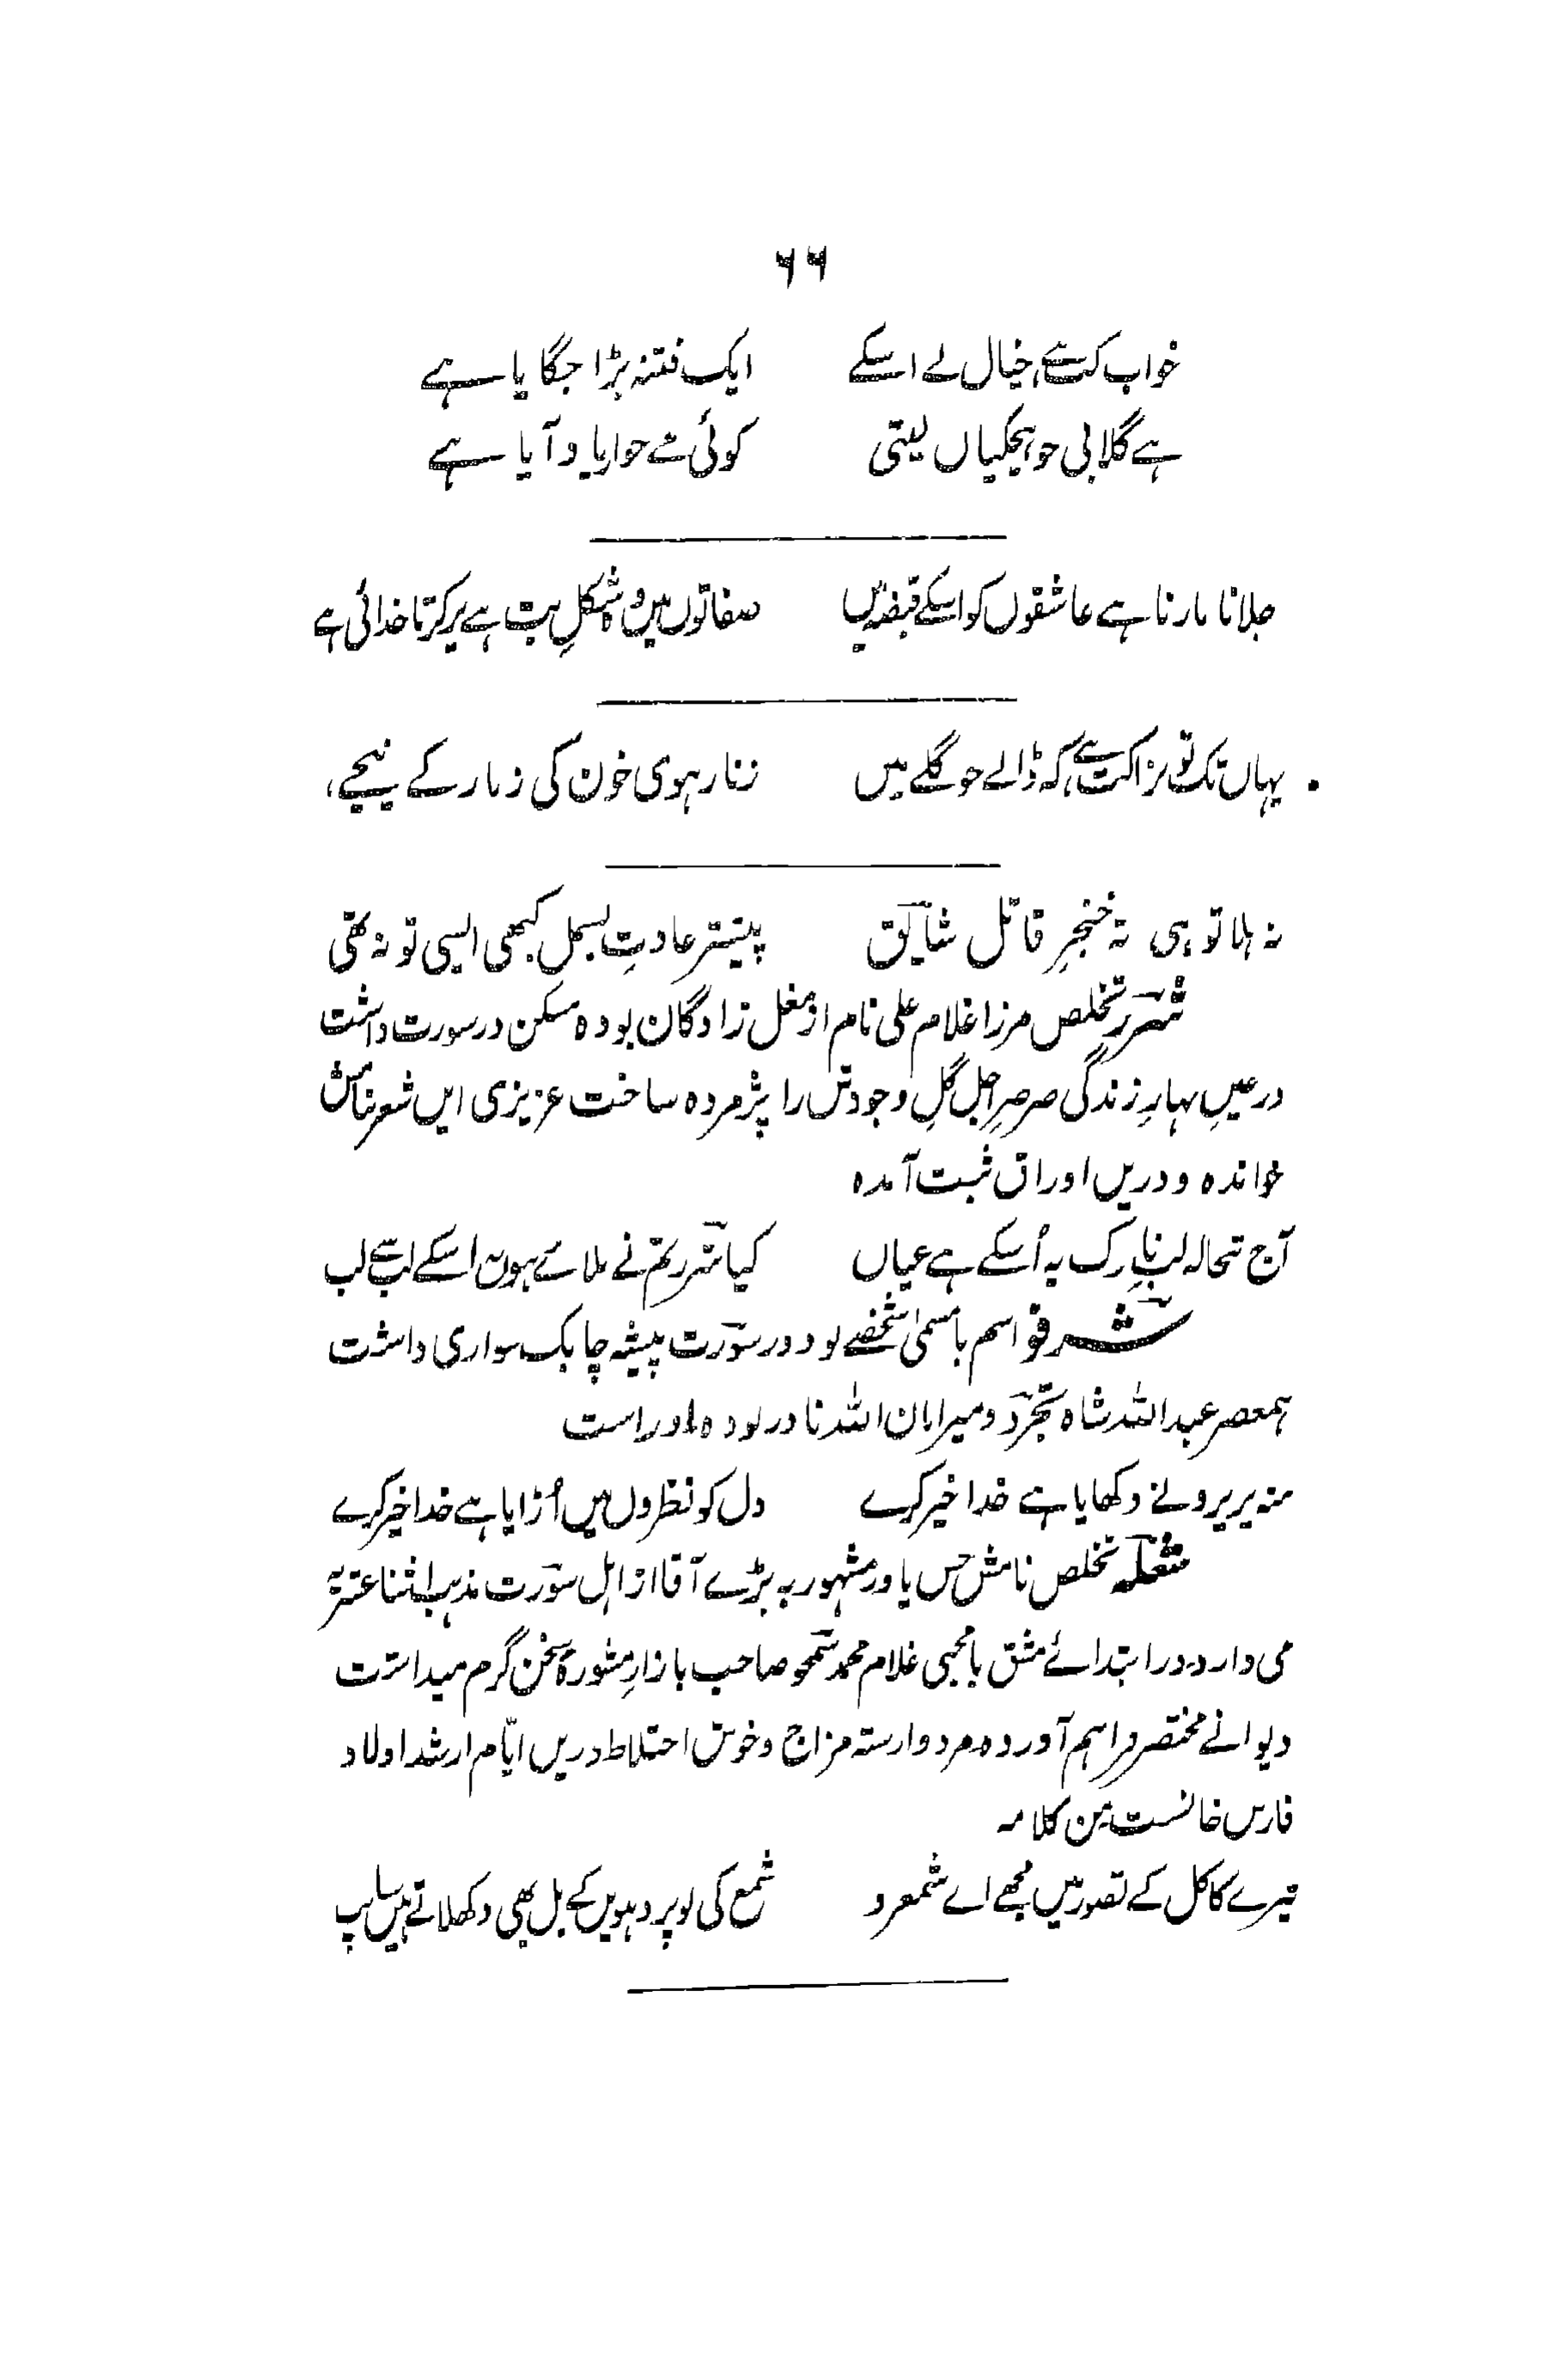 ۶۶
خواب کسے خیال نے اسکے ایک فتنہ بڑا جگایا ہے
ہے گلابی جو ہچکیاں لیتی کوئی مے خوار یاد آیا ہے
جلانا مارنا ہے عاشقوں کو اسکے قبضہ میں صفاتوں میں وہ شکلِ بت ہے پر کرتا خدائی ہے
یہاں تک تو نزاکت ہے کہ ڈالے جو گلے میں زنار ہوی خون کی زنار کے نیچے
نہ ہلا تو ہی تہ خنجرِ قاتل شایق پیشتر عادتِ بسمل کبھی ایسی تو نہ تھی
شرر تخلص مرزا غلام علی نام از مغل زادگان بوده مسکن در سورت داشت
در عینِ بہارِ زندگی صرصرِ اجل گلِ وجودش را پژمرده ساخت عزیزی ایں شعر بنامش
خوانده و دریں اوراق ثبت آمده
آج تبخالہ لبِ نازک پہ اُسکے ہے عیاں کیا شرر تم نے ملائے ہوں اسکے لب سے لب
شرفو اسم بامسمیٰ شخصے بود در سورت پیشہ چابک سواری داشت
ہمعصر عبد اللہ شاه تجرد و میر امان اللہ نادر بوده اوراست
منہ پریرو نے دکھایا ہے خدا خیر کرے دل کو نظروں میں اُڑایا ہے خدا خیر کرے
شعلہ تخلص نامش حسن یاور مشہور بہ بڑے آقا از اہل سورت مذہب اثنا عشریہ
می دارد در ابتدائے مشق با محبی غلام محمد شمحو صاحب بازارِ مشورۂ سخن گرم میداشت
دیوانے مختصر فراہم آورده مرد وارستہ مزاج و خوش اختلاط دریں ایّام ارشد اولاد
فارس خانست من کلامہ
تیرے کاکل کے تصور میں مجھے اے شمعرو شمع کی لو پر دہویں کے بل بھی دکھلاتے ہیں سانپ